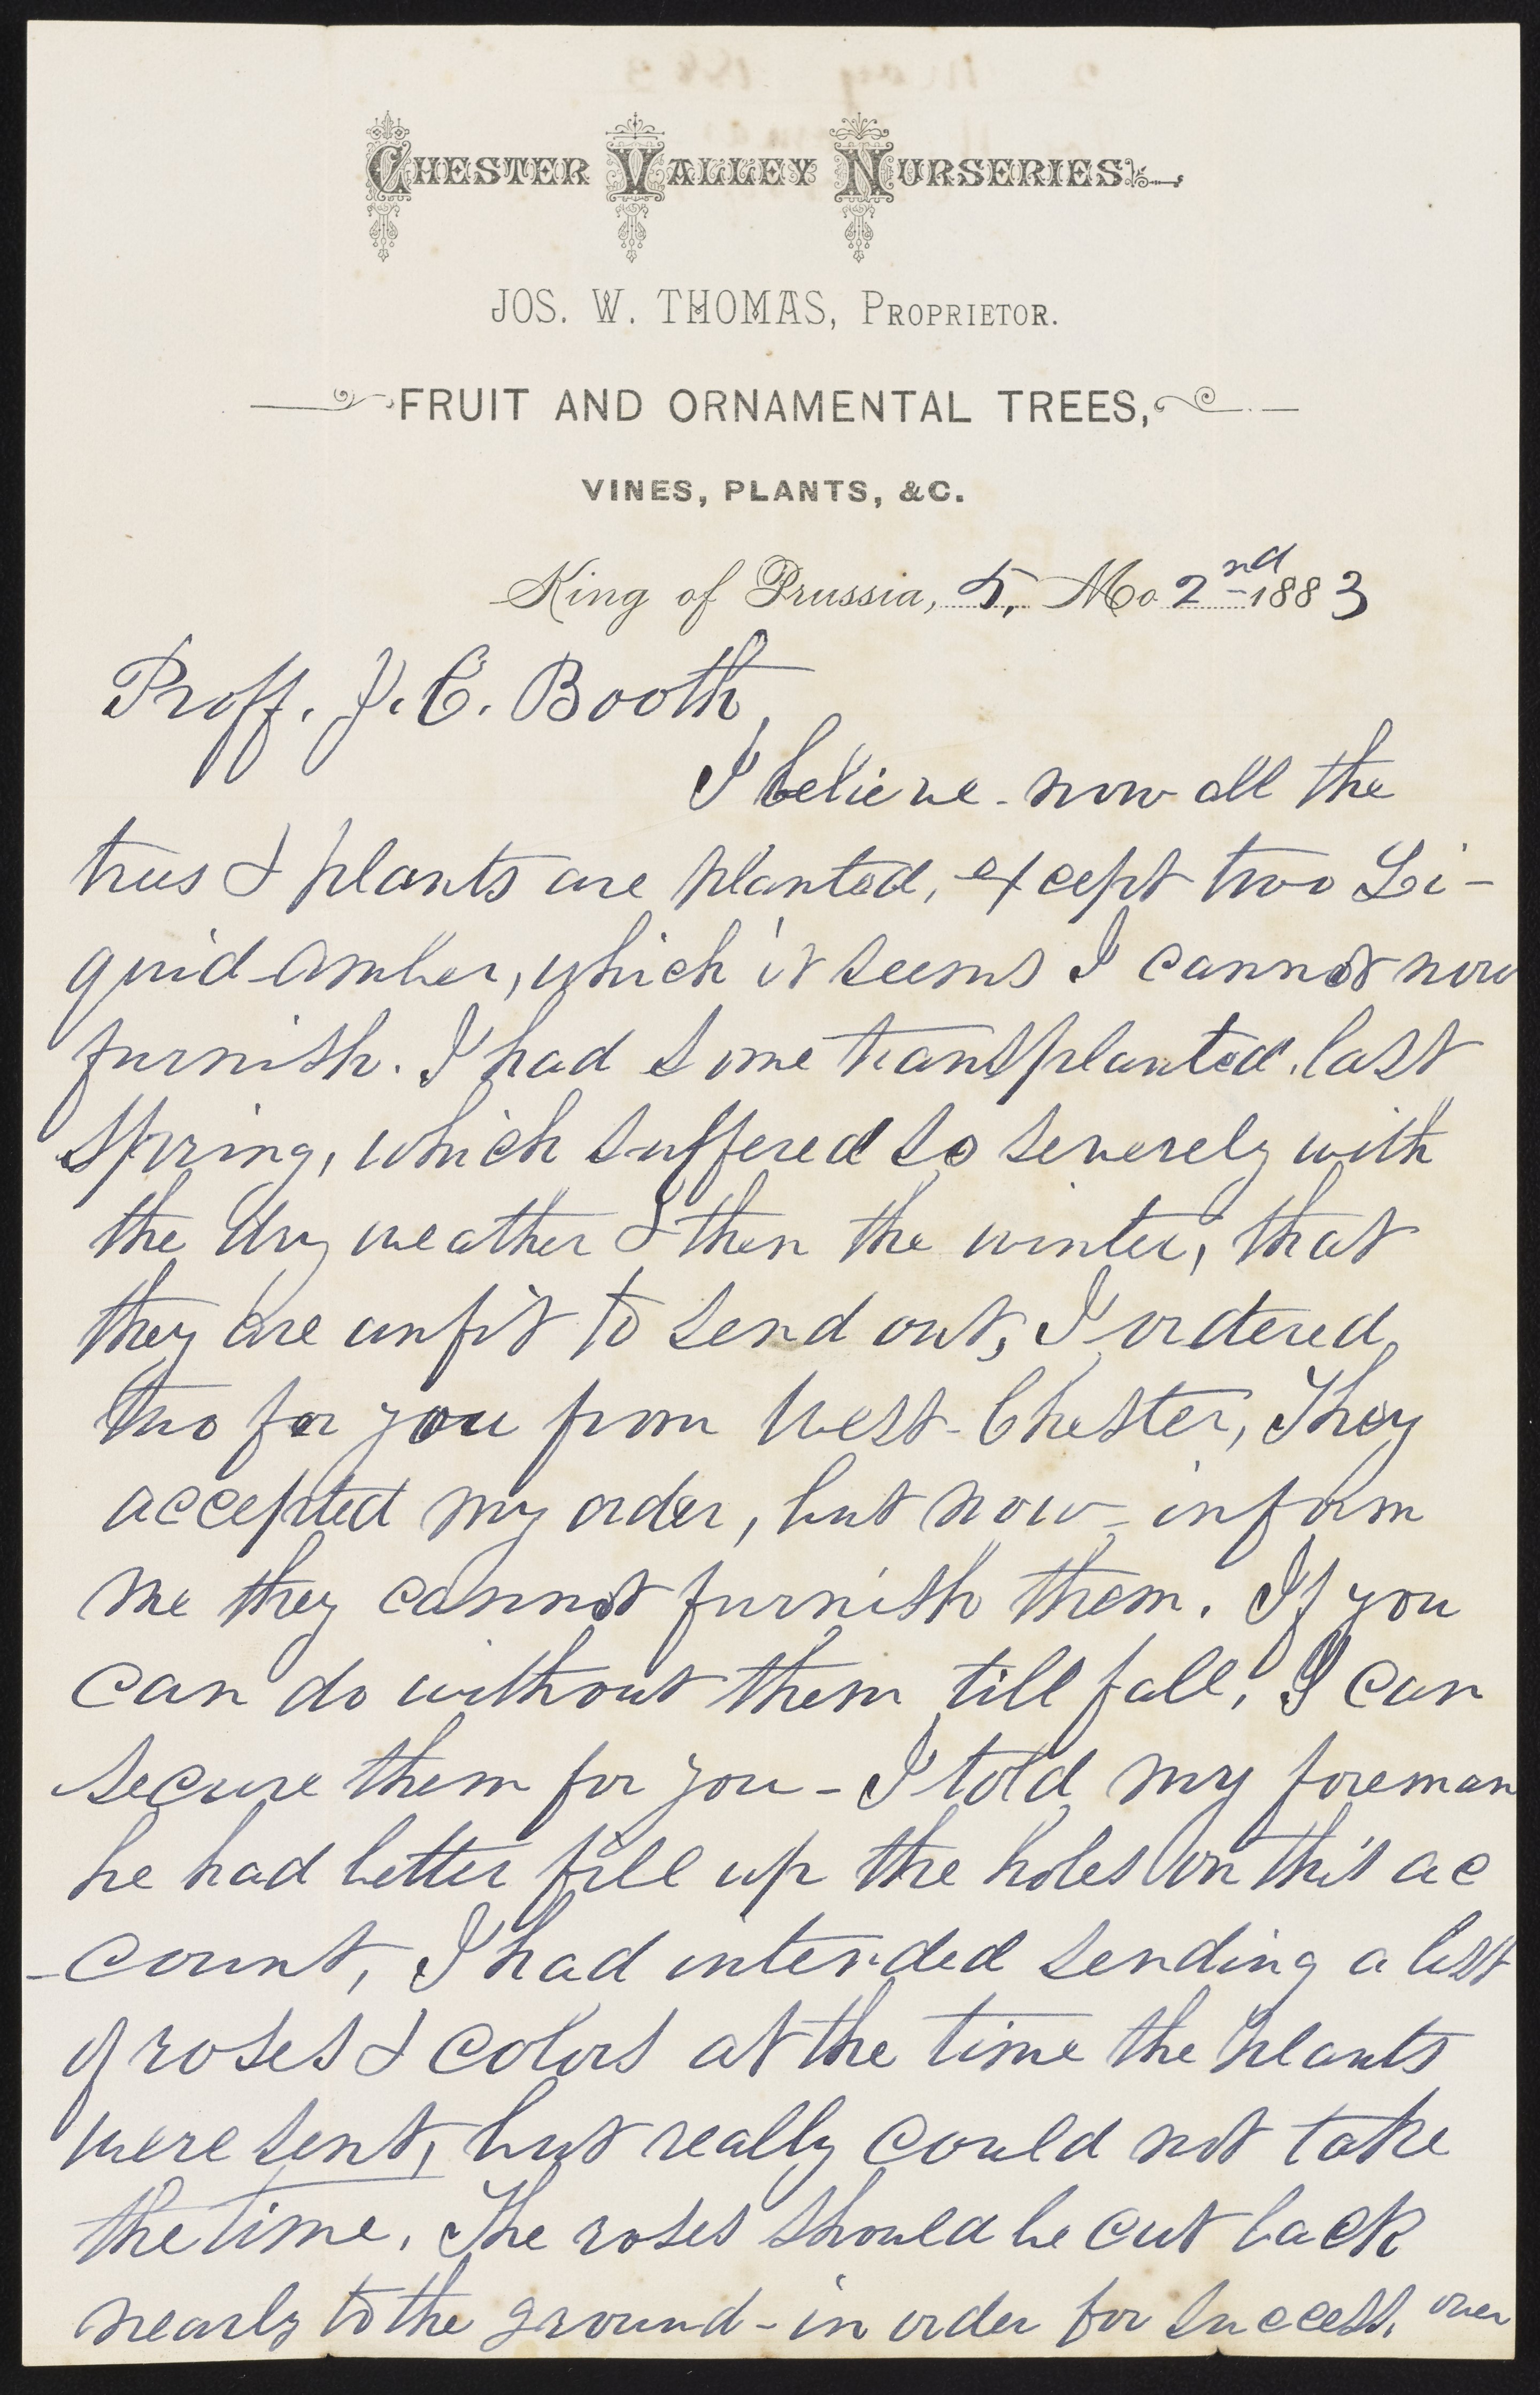 CHESTER VALLEY NURSERIES.
JOS. W. THOMAS, PROPRIETOR.
FRUIT AND ORNAMENTAL TREES,
VINES, PLANTS, &C.
King of Prussia, 5, Mo 2nd 1883
Proff. J. C. Booth,
I believe - now all the
trees & plants are planted, except two Li-
quid-amber, which it seems I cannot now
furnish. I had some transplanted last
spring, which suffered so severely with
the dry weather & then the winter, that
they are unfit to send out, I ordered
two for you from West-Chester, They
accepted my order, but now - inform
me they cannot furnish them. If you
can do without them till fall, I can
secure them for you - I told my foreman
he had better fill up the holes on this ac
-count, I had intended sending a list
of roses & colors at the time the plants
were sent, but really could not take
the time. The roses should be cut back
nearly to the ground - in order for success. over